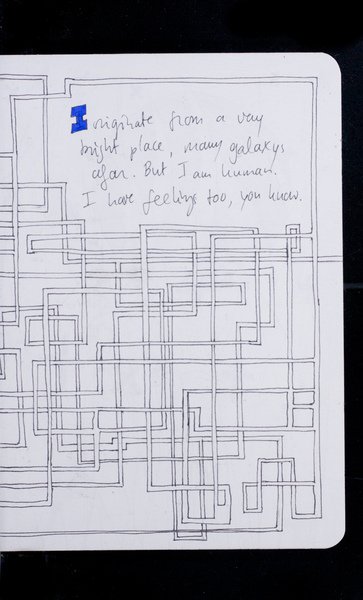 I originate from a very
bright place, many galaxys
afar. But I am human.
I have feelings too, you know.